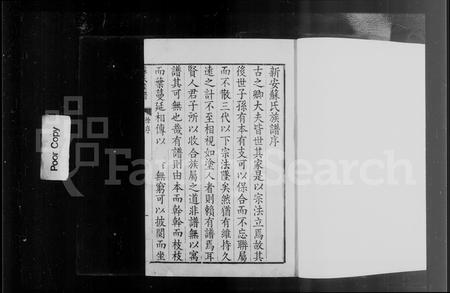 新安蘇氏族譜序
古之卿大夫皆世其家是以宗法立焉故其
後世子孫有本有支可以保合而不忘聯屬
而不散三代以下宗法墜矣然猶有維持久
遠之計不至相視如塗人者則賴有譜焉耳
賢人君子所以收合族屬之道非譜無以寓
譜其可無也哉有譜則由本而幹幹而枝枝
而葉蔓延相傳以 無窮可以披閱而坐
Poor Copy
FamilySearch